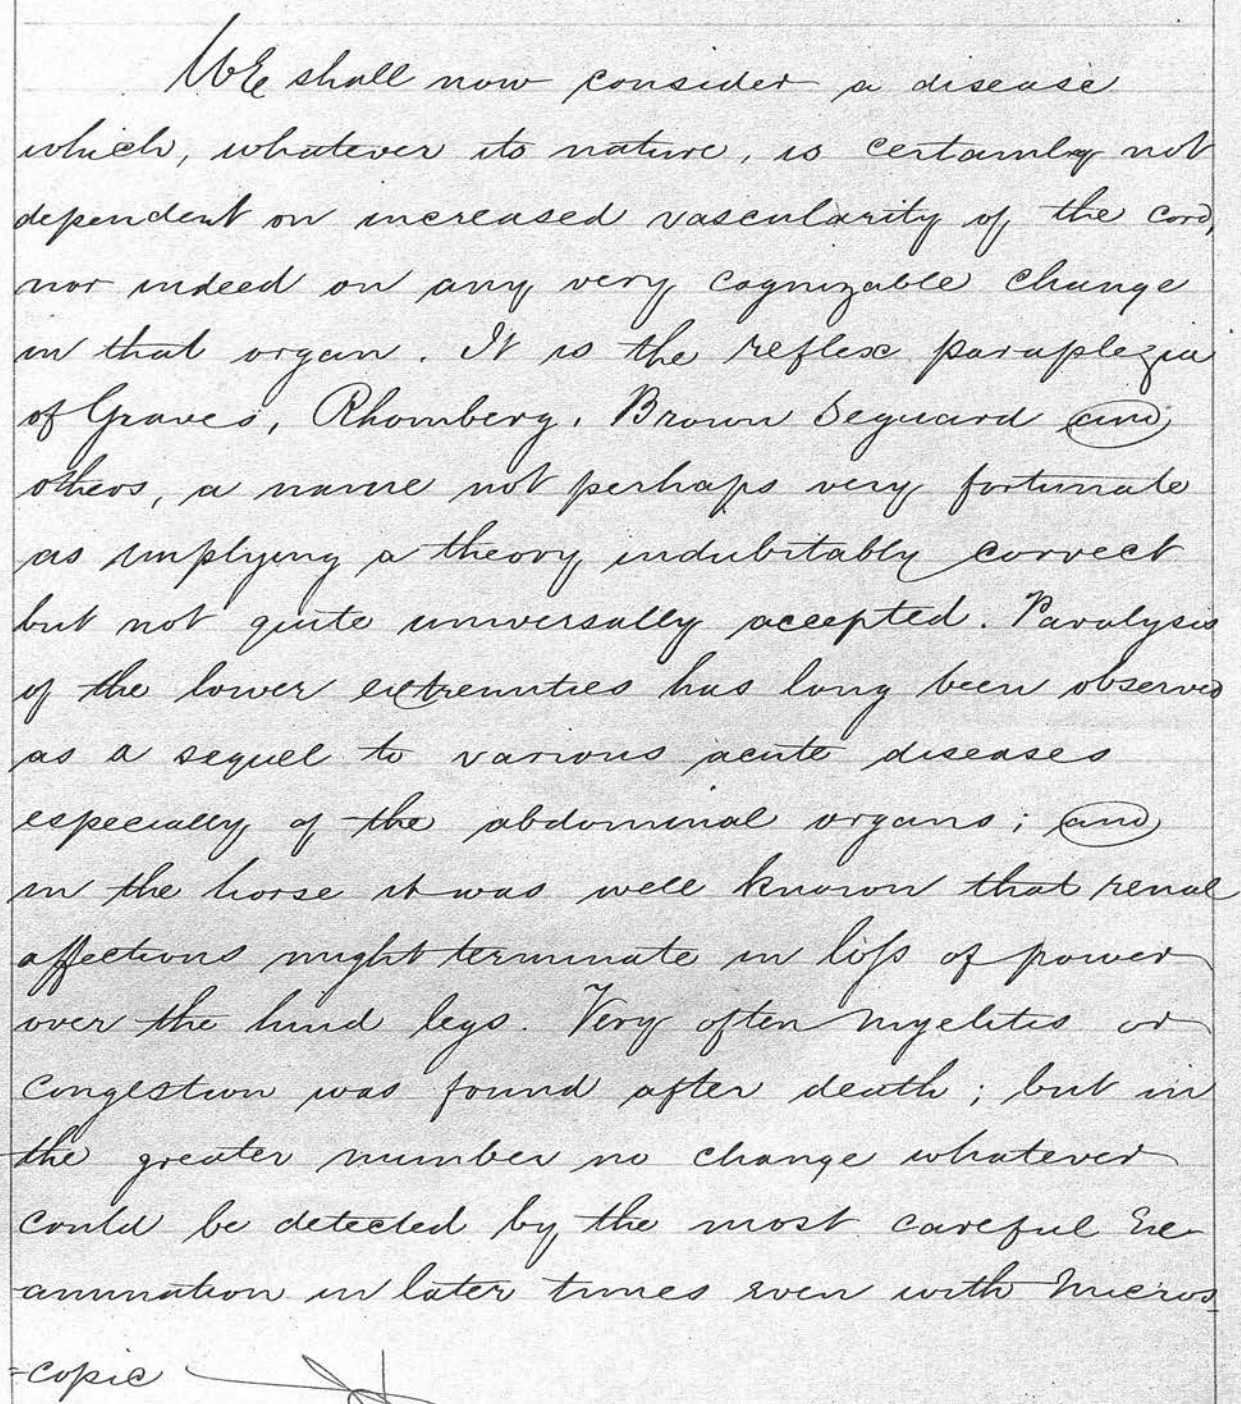 We shall now consider a disease
which, whatever its nature, is certainly not
dependent on increased vascularity of the cord,
nor indeed on any very cognizable change
in that organ. It is the reflex paraplegia
of Graves, Rhomberg, Brown Seguard and
others, a name not perhaps very fortunate
as implying a theory indubitably correct
but not quite universally accepted. Paralysis
of the lower extremities has long been observed
as a sequel to various acute diseases
especially of the abdominal organs; and
in the horse it was well known that renal
affections might terminate in loss of power
over the hind legs. Very often myelitis or
congestion was found after death; but in
the greater number no change whatever
could be detected by the most careful Ex-
amination in later times even with Micros-
=copic